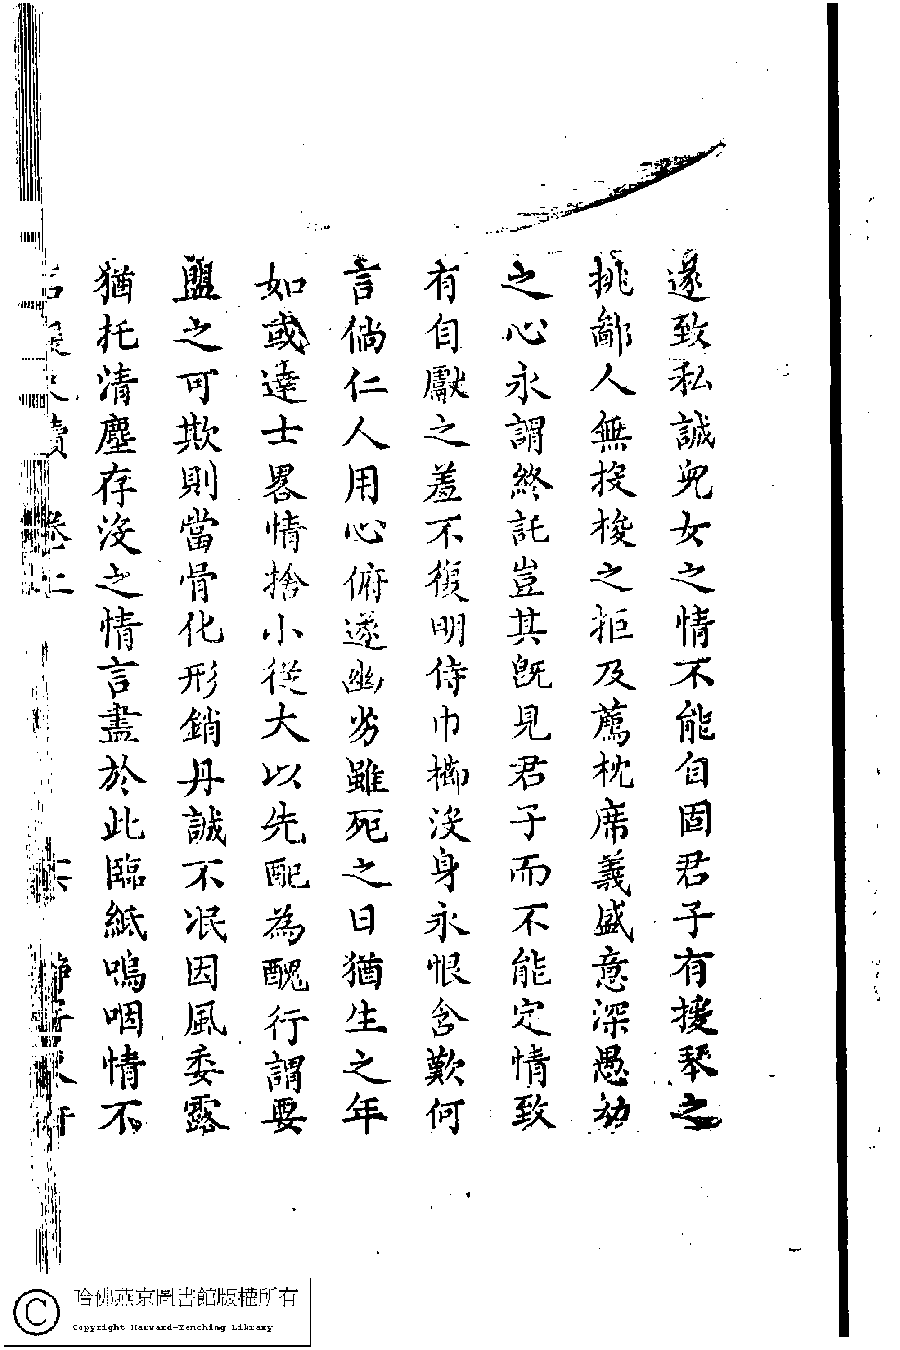 遂致私誠兒女之情不能自固君子有援琴之
挑鄙人無投梭之拒及薦枕席義盛意深愚幼
之心永謂終託豈其旣見君子而不能定情致
有自獻之羞不復明侍巾櫛沒身永恨含歎何
言倘仁人用心俯遂幽劣雖死之日猶生之年
如或達士畧情捨小從大以先配為醜行謂要
盟之可欺則當骨化形銷丹誠不泯因風委露
猶托清塵存沒之情言盡於此臨紙嗚咽情不
卷上
哈佛燕京圖書館版權所有
Copyright Harvard-Yenching Library